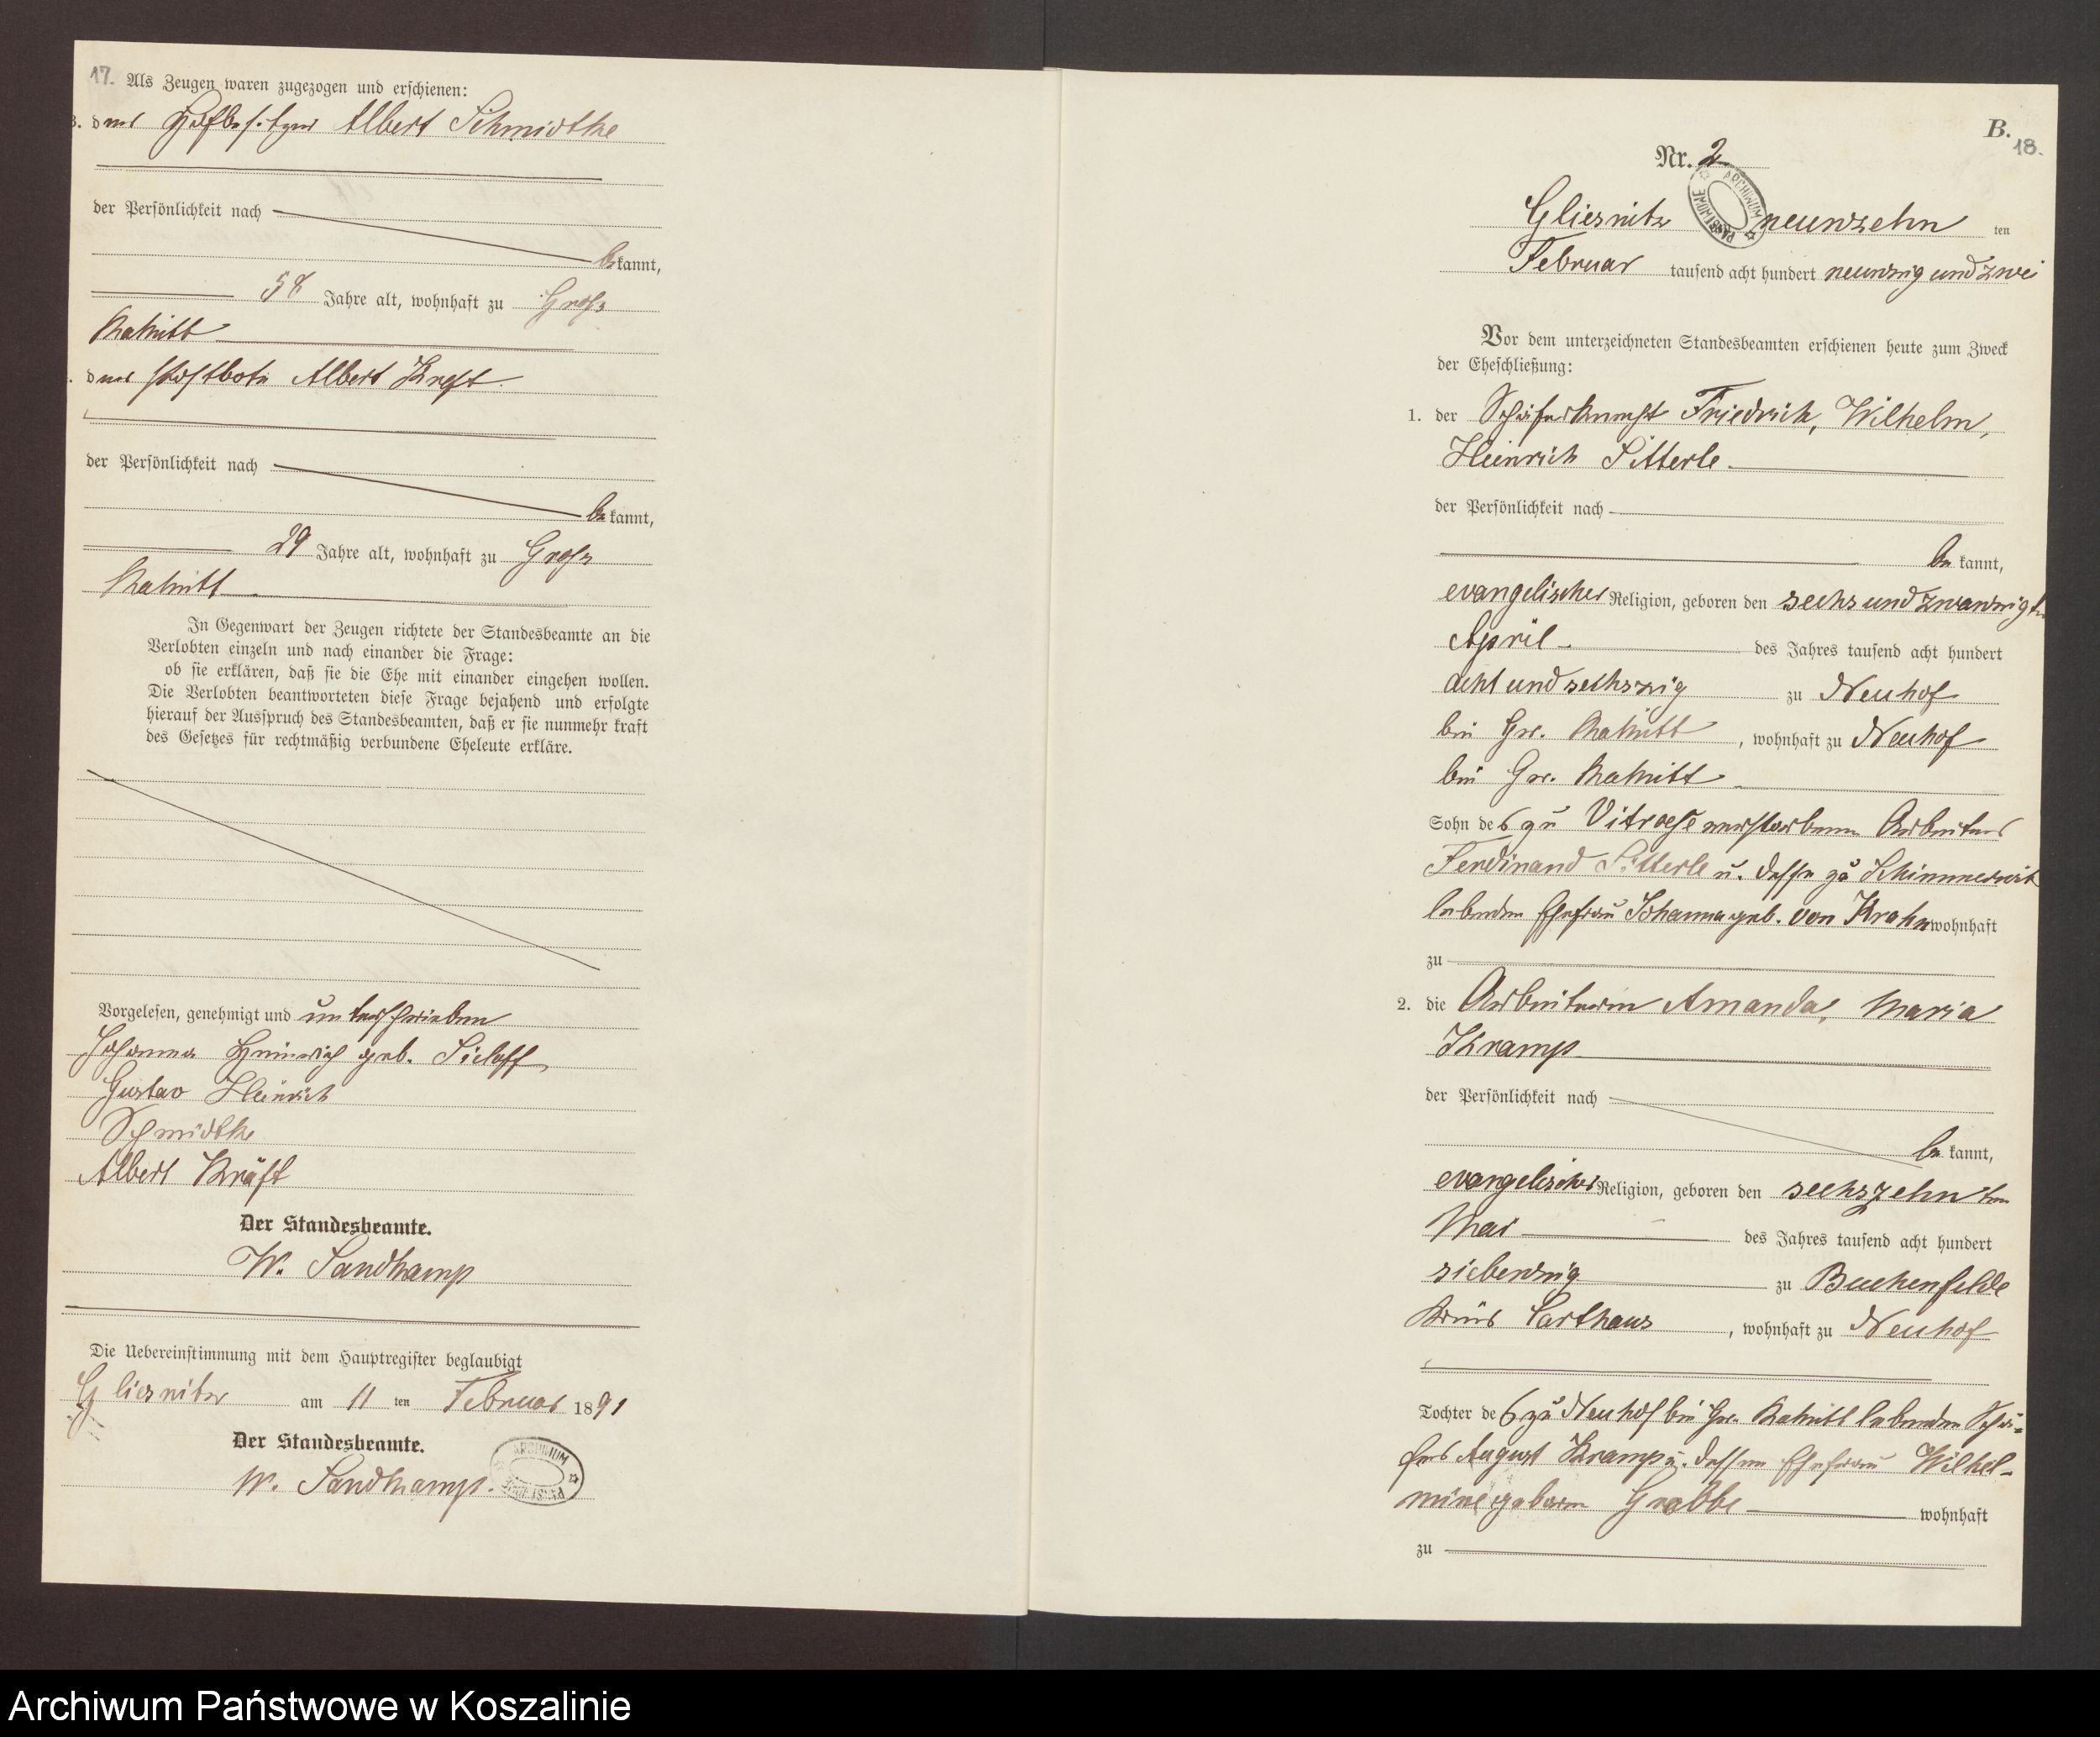 17. Als Zeugen waren zugezogen und erschienen:
3. der Hofbesitzer Albert Schmidtke
der Persönlichkeit nach
bekannt,
58 Jahre alt, wohnhaft zu Gross
Rakitt
der Postbote Albert Kreft
der Persönlichkeit nach
bekannt,
29 Jahre alt, wohnhaft zu Gross
Rakitt
In Gegenwart der Zeugen richtete der Standesbeamte an die
Verlobten einzeln und nach einander die Frage:
ob sie erklären, daß sie die Ehe mit einander eingehen wollen.
Die Verlobten beantworteten diese Frage bejahend und erfolgte
hierauf der Ausspruch des Standesbeamten, daß er sie nunmehr kraft
des Gesetzes für rechtmäßig verbundene Eheleute erkläre.
Vorgelesen, genehmigt und unterschrieben
Johanna Heinrich geb. Sieloff
Gustav Heinrich
Schmidtke
Albert Kräft
Der Standesbeamte.
W. Sandkamp
Die Uebereinstimmung mit dem Hauptregister beglaubigt
Gliesnitz am 11 ten Februar 1891
Der Standesbeamte.
W. Sandkamp.
B.
18.
Nr. 2
Gliesnitz neunzehn ten
Februar tausend acht hundert neunzig und zwei
Vor dem unterzeichneten Standesbeamten erschienen heute zum Zweck
der Eheschließung:
1. der Schäferknecht Friedrich, Wilhelm,
Heinrich Sitterle
der Persönlichkeit nach
bekannt,
evangelischer Religion, geboren den sechs und zwanzigten
April des Jahres tausend acht hundert
acht und sechszig zu Neuhof
bei Gr. Rakitt, wohnhaft zu Neuhof
bei Gr. Rakitt
Sohn des zu Vitroese verstorbenen Arbeiters
Ferdinand Sitterle u. dessen zu Schimmerwitz
lebenden Ehefrau Johanna geb. von Krahn wohnhaft
zu
2. die Arbeiterin Amanda, Maria
Kramp
der Persönlichkeit nach
bekannt,
evangelischer Religion, geboren den sechszehn ten
Mai des Jahres tausend acht hundert
siebenzig zu Buchenfelde
Kreis Carthaus, wohnhaft zu Neuhof
Tochter des zu Neuhof bei Gr. Rakitt lebenden Schä-
fers August Kramp u. dessen Ehefrau Wilhel-
mine geboren Grabbe wohnhaft
zu
Archiwum Państwowe w Koszalinie